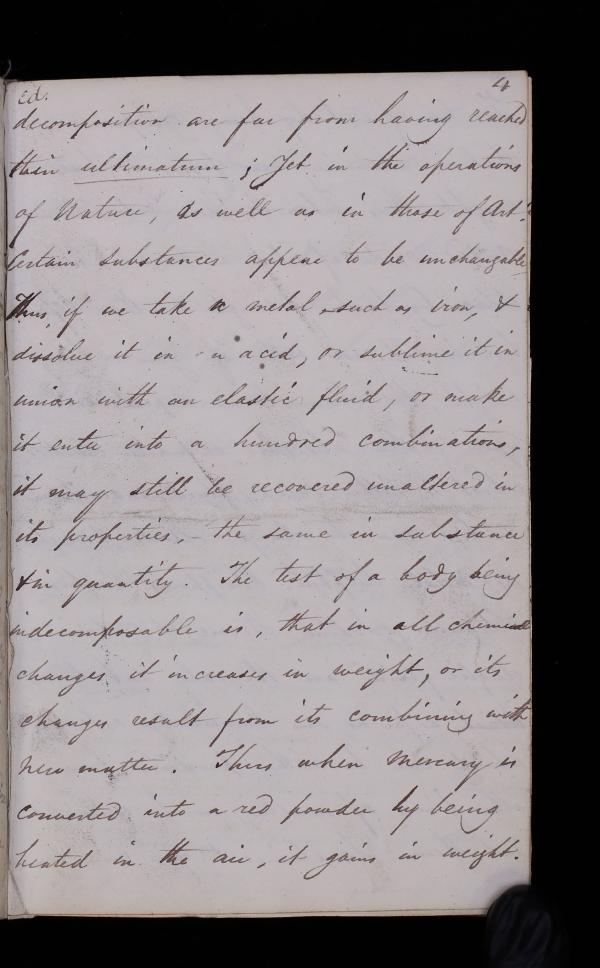 Ed.
4
decomposition are far from having reached
their ultimatum; Yet in the operations
of Nature, as well as in those of Art.
Certain substances appear to be unchangable
Thus, if we take a metal, such as iron, &
dissolve it in an acid, or sublime it in
union with an elastic fluid, or make
it enter into a hundred combinations,
it may still be recovered unaltered in
its properties, - the same in substance
& in quantity. The test of a body being
indecomposable is, that in all chemical
changes it increases in weight, or its
changes result from its combining with
new matter. Thus when Mercury is
converted into a red powder by being
heated in the air, it gains in weight.